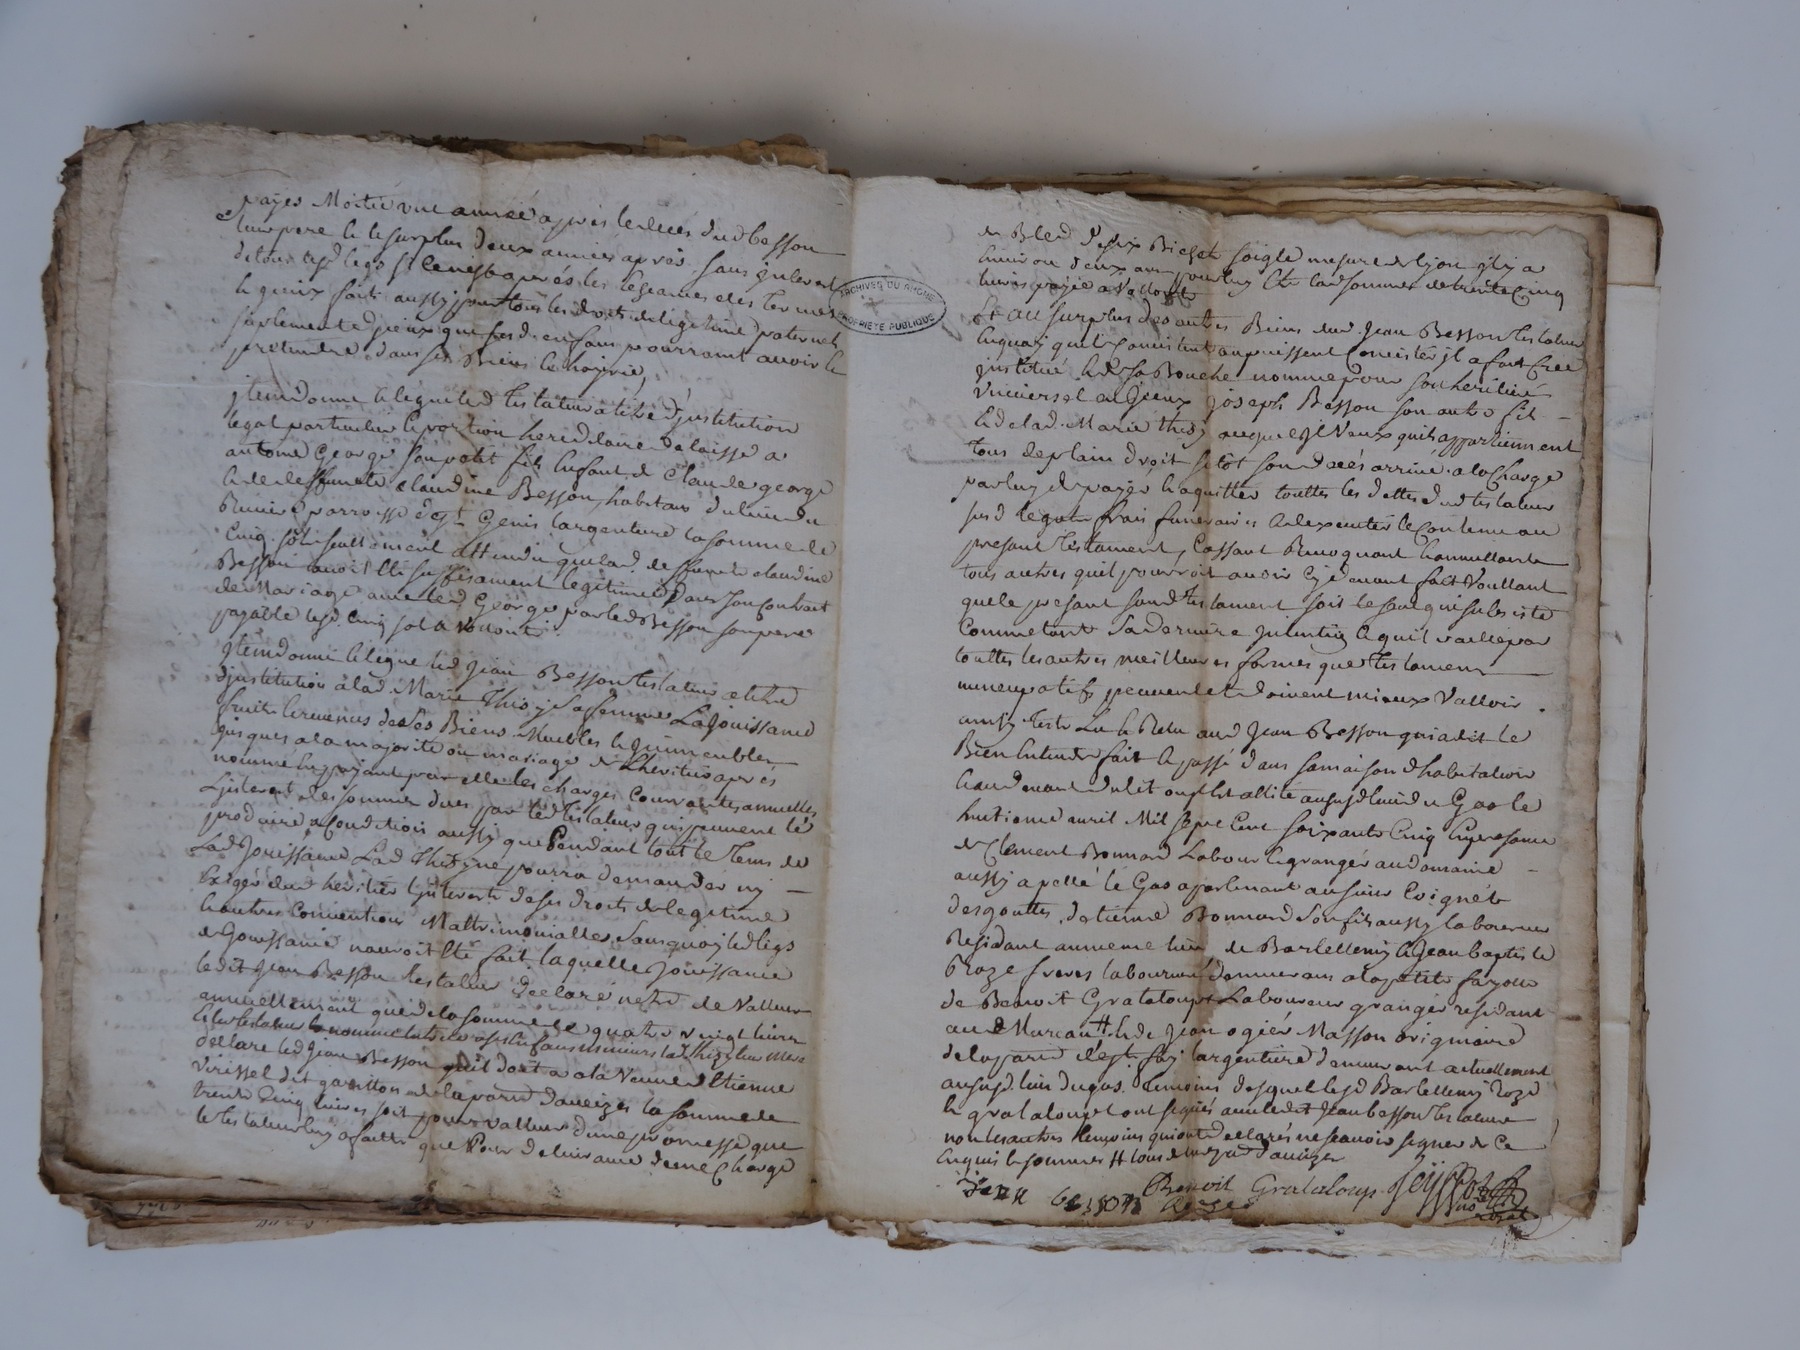 payés Moitié une année après le decés dud besson
leur pere & le surplus deux années après sans interest
de tous lesd legs si ce n'est après les echeances des termes
le quoix fait aussy pour tous les droits de legitime paternels
suplement d'yeux que sesd enfans pourraint avoir &
pretendre dans ses Biens & hoyrie,
jtem donne & legue led Testateur a titre d'institution
legat particulier & portion hereditaire delaisse a
antoine George son petit fils Enfant de Claude george
& de deffunte claudine Besson, habitans du lieu du
Rivier parroisse de st Genis largentiere la somme de
Cinq sols seullement attendu que lad deffunte claudine
Besson avoit été suffisament legitimée dans son contrat
de Mariage avec led George par led Besson son pere
payable lesd cinq sols a volonté.
jtem donne & legue led Jean Besson testateur a titre
d'institution a lad Marie Thisy sa femme La Jouissance
fruits & revenus de ses Biens Meubles & Jmmeubles
jusques a la majorité ou mariage de l'heritier apres
nommé en payant par elle les charges courrantes annuelles
L'jnterest des sommes dues par led testateur qui peuvent le
produire a condition aussy que Pendant tout le tems de
Lad Jouissance Lad Thisy ne pourra demander ny
Exiger dud heritier l'jnterest de ses droits de legitime
& autres Conventions Mattrimonialles, sans quoy led legs
de Jouissance n'auroit été fait, laquelle Jouissance
ledit Jean Besson testateur declare n'estre de Valleur
annuellement que de la somme de quatre vingt livres
declare led Jean Besson qu'il doit a la Veuve d'Etienne
Virissel dit garitton de la paroisse d'aveizes la somme de
trente Cinq livres soit pour valleur d'une promesse que
le testateur luy a faitte que Pour delivrance d'une charge
de Bled de six Bichets soigle mesure de lyon il y a
Environ deux ans pour luy Etre lad somme de trente Cinq
livres payée a Volonté
Et au surplus des autres Biens dud Jean Besson testateur
En quoy qu'ils consistent ou puissent consister jl a fait creé
jnstitué & de sa Bouche nommé pour son heritier
Universel aujeux joseph Besson son autre fils
& de lad Marie thisy auquel jl Veux qu'ils appartiennent
tous de plain droit sitot son decés arrivé a la Charge
par luy de payer & aquitter touttes les dettes dud testateur
susd legats frais funeraires & d'executer le contenu au
present testament, Cassant Revoquant & annullant
tous autres qu'il pourroit avoir cy devant fait Voullant
que le present sond testament soit le seul qui subsiste
Comme etant sa derniere jntention & qu'il vaille par
touttes les autres meilleures formes que testament
nuncupatifs peuvent & doivent mieux Valloir.
ainsy testé Lu & Relu aud Jean Besson qui a dit le
Bien Entendre fait & passé dans sa maison d'habitation
& au devant du lit ou il est allité au susd lieu du Gas le
huitieme avril Mil sept Cent soixante Cinq En presence
de Clement Bonnard Laboureur & granger au domaine
aussy apellé le Gas apartenant au sieur Coignet
desgouttes, d'etienne Bonnard son fils aussy laboureur
Residant au meme lieu de Bartellemy & Jean baptiste
Roze freres laboureurs demeurans a la petite fayolle
de Benoit Grataloup Laboureur granger residant
au Mureau H & de Jean ogier Masson originaire
de la paroisse de st foy l'argentiere demeurant actuellement
au susd lieu du gas temoins desquels lesd Bartellemy Roze
& grataloup ont signés avec ledit Jean besson testateur
non les autres temoins qui ont declarés ne scavoir signer de ce
Enquis & sommes H tous de lad paroisse d'aveizes
jean besson Benoit Grataloup
Roze